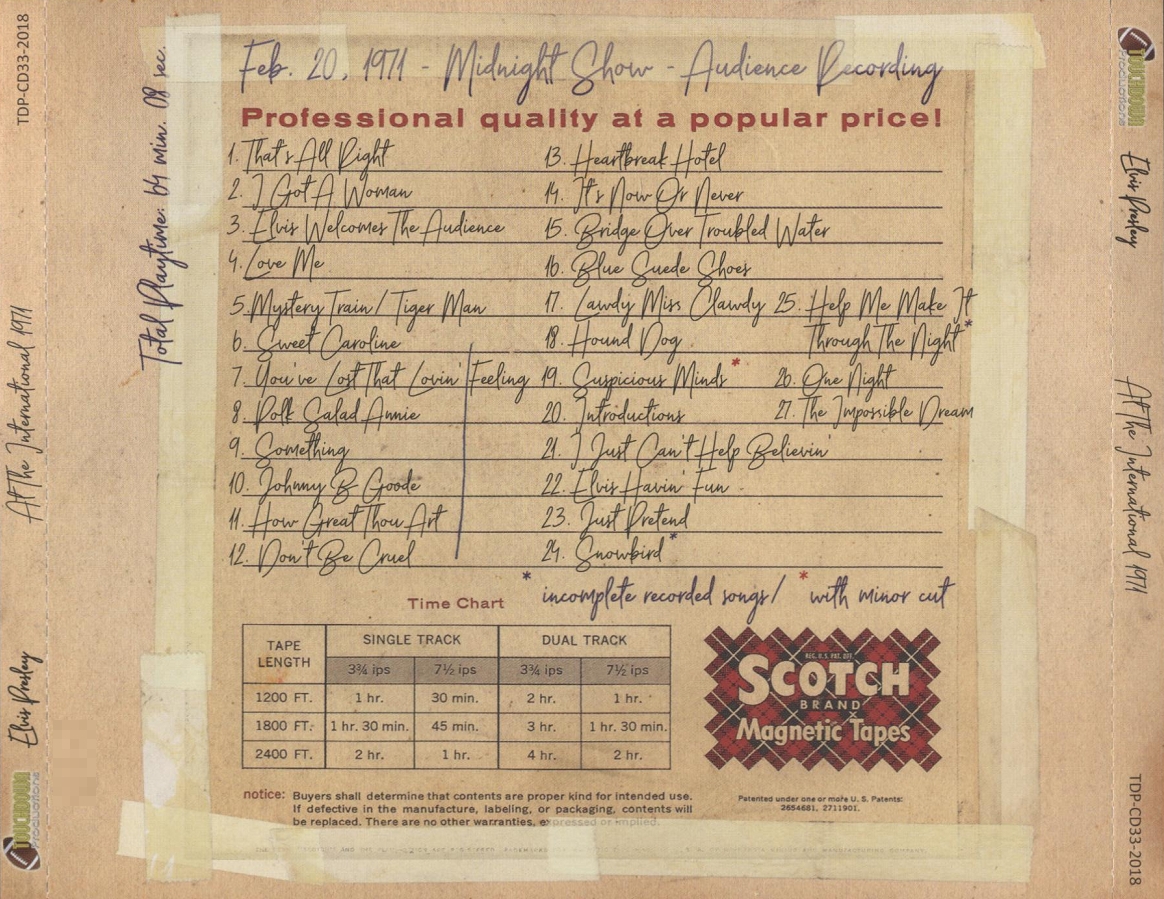 Feb. 20, 1971 - Midnight Show - Audience Recording
Professional quality at a popular price!
1. That's All Right
2. I Got A Woman
3. Elvis Welcomes The Audience
4. Love Me
5. Mystery Train / Tiger Man
6. Sweet Caroline
7. You've Lost That Lovin' Feeling
8. Polk Salad Annie
9. Something
10. Johnny B Goode
11. How Great Thou Art
12. Don't Be Cruel
13. Heartbreak Hotel
14. It's Now Or Never
15. Bridge Over Troubled Water
16. Blue Suede Shoes
17. Lawdy Miss Clawdy
18. Hound Dog
19. Suspicious Minds *
20. Introductions
21. I Just Can't Help Believin'
22. Elvis Havin' Fun
23. Just Pretend
24. Snowbird *
25. Help Me Make It
Through The Night *
26. One Night
27. The Impossible Dream
* incomplete recorded songs / * with minor cut
Time Chart
TAPE LENGTH SINGLE TRACK DUAL TRACK
3¾ ips 7½ ips 3¾ ips 7½ ips
1200 FT. 1 hr. 30 min. 2 hr. 1 hr.
1800 FT. 1 hr. 30 min. 45 min. 3 hr. 1 hr. 30 min.
2400 FT. 2 hr. 1 hr. 4 hr. 2 hr.
REG. U.S. PAT. OFF.
SCOTCH
BRAND
Magnetic Tapes
notice: Buyers shall determine that contents are proper kind for intended use.
If defective in the manufacture, labeling, or packaging, contents will
be replaced. There are no other warranties, expressed or implied.
Patented under one or more U. S. Patents:
2654681, 2711901.
Total Playtime: 64 min. 08 sec.
TDP-CD33-2018
At The International 1971
Elvis Presley
TOUCHDOWN
Productions
TOUCHDOWN
Productions
Elvis Presley
At The International 1971
TDP-CD33-2018